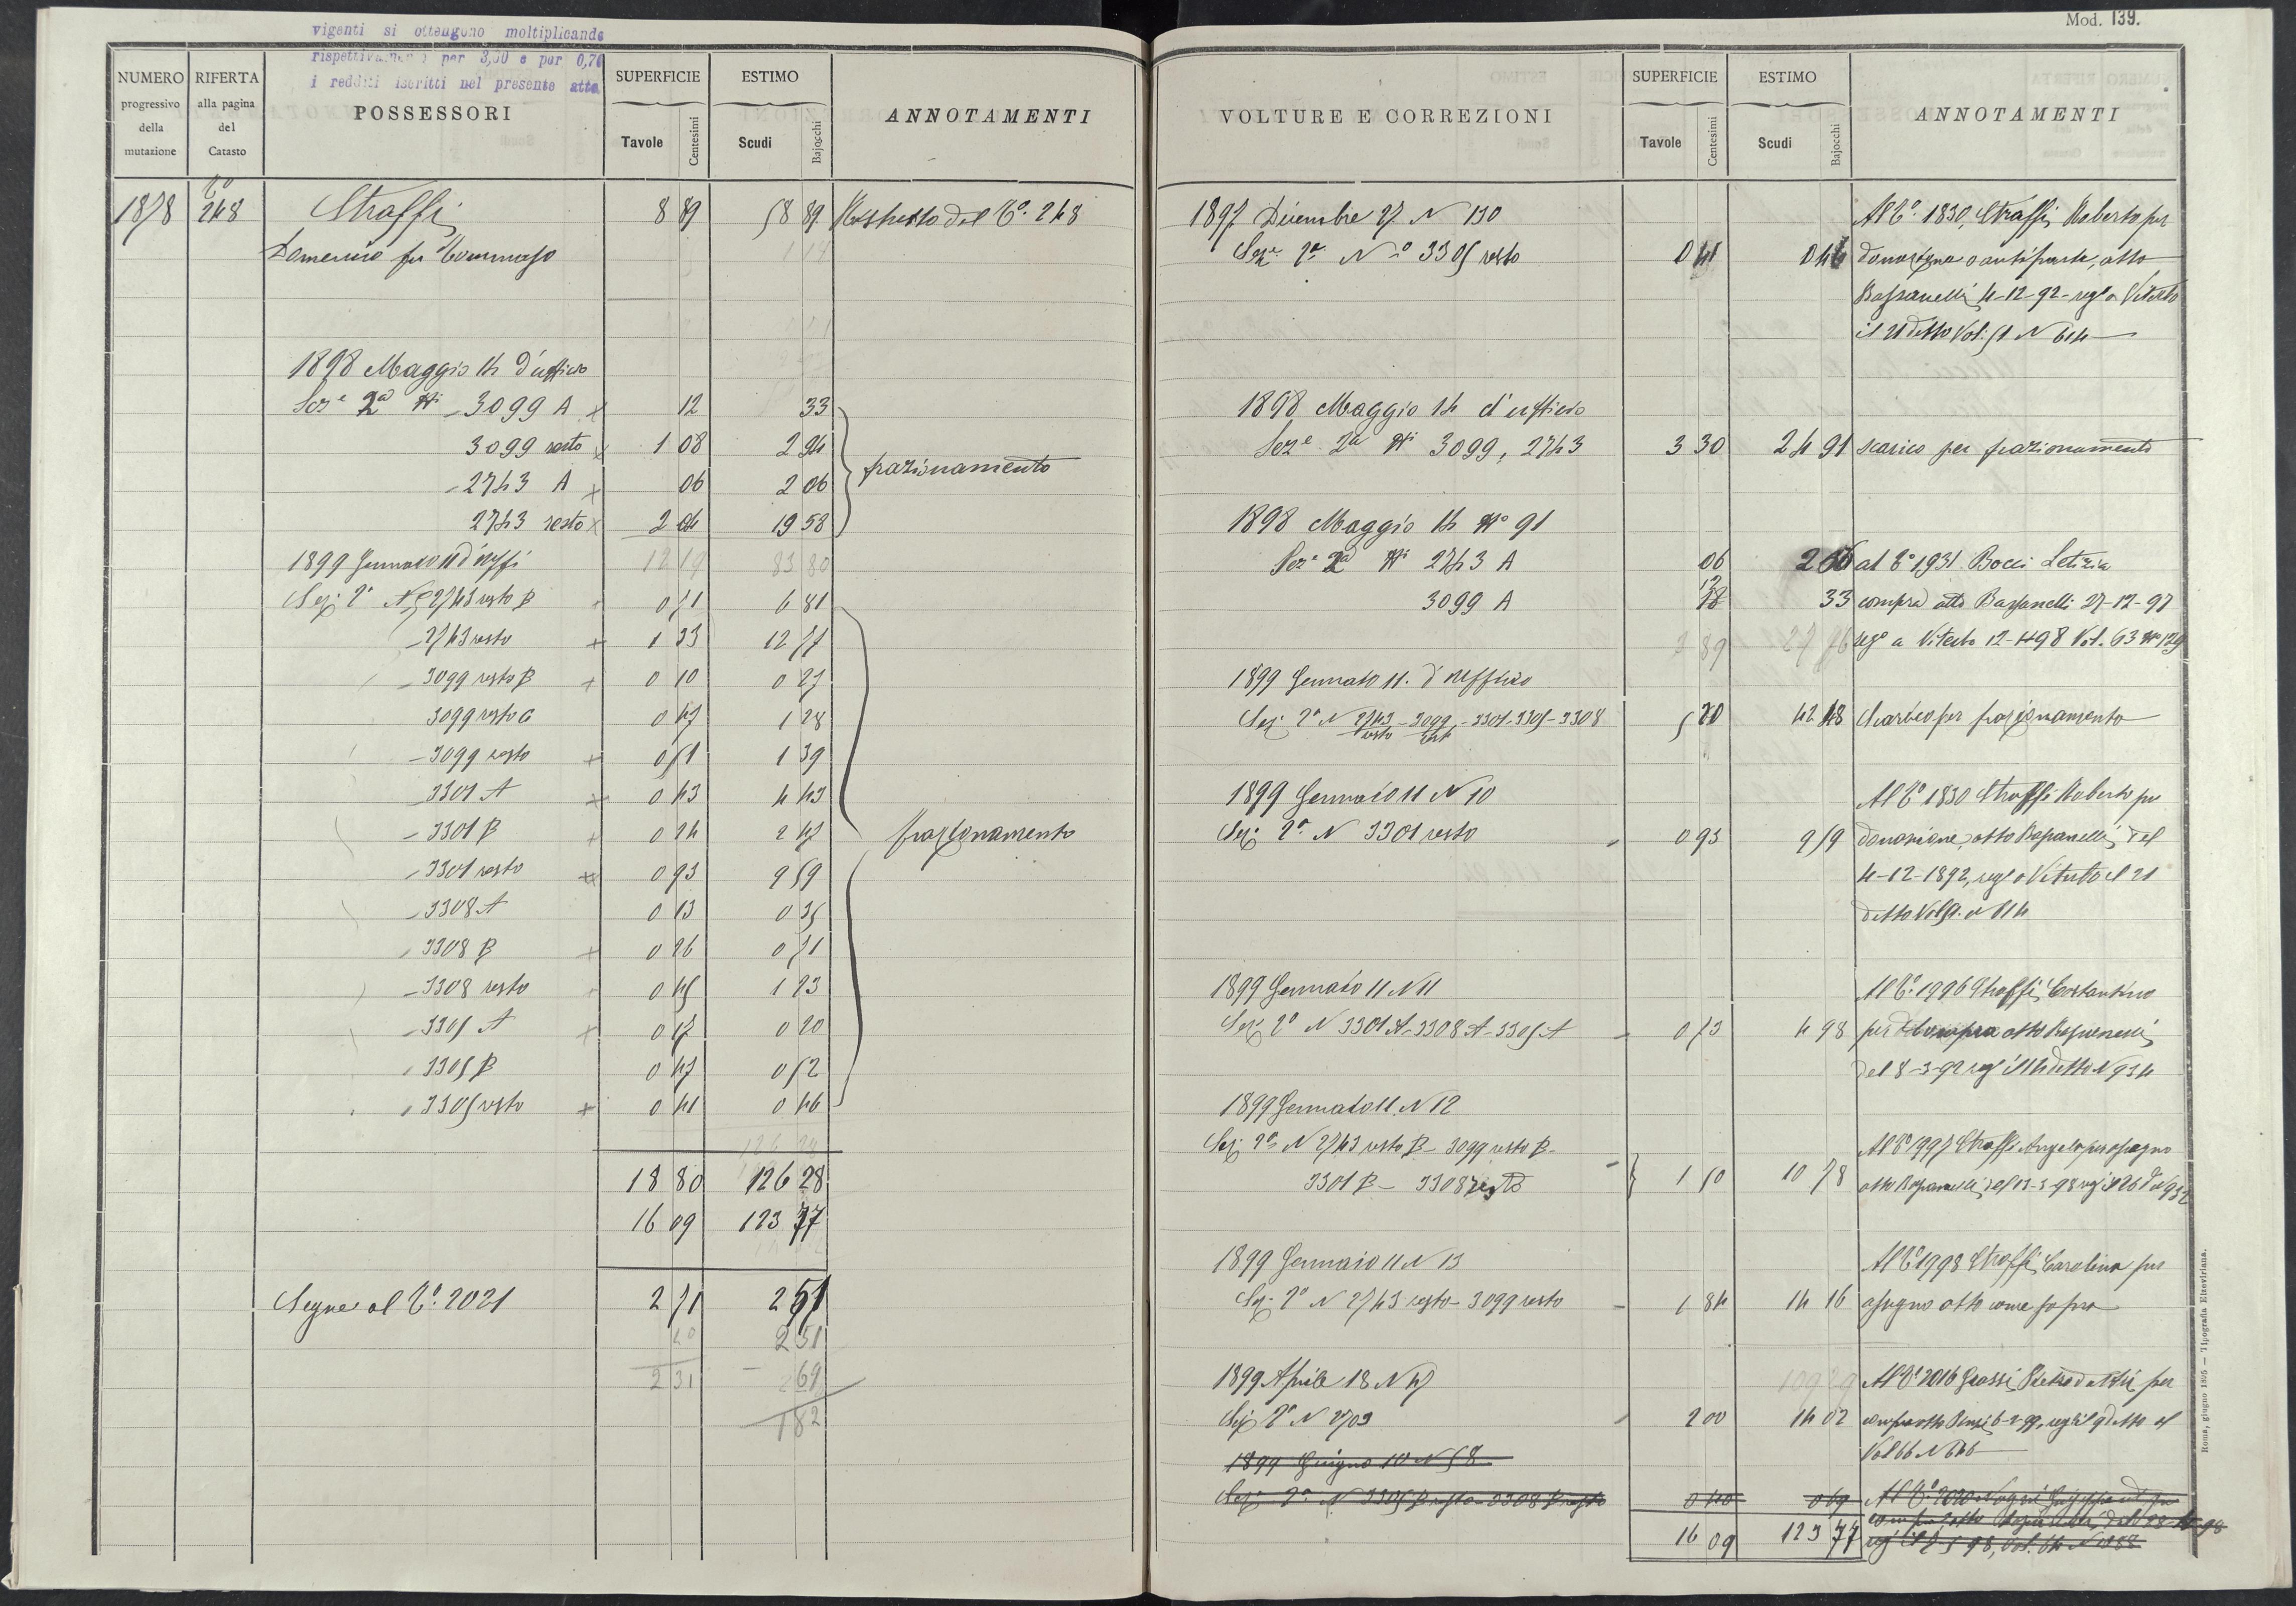 vigenti si ottengono moltiplicando
rispettivamente per 3,30 e per 0,70
i redditi iscritti nel presente atto
NUMERO progressivo della mutazione
RIFERTA alla pagina del Catasto
POSSESSORI
SUPERFICIE
Tavole Centesimi
ESTIMO
Scudi Bajocchi
ANNOTAMENTI
1878 248 Straffi 8 89 58 89 del T.o 248
Domenico fu Tommaso
1898 Maggio 14 d'ufficio
Sez.e 2a Ni 3099 A 12 33
3099 resto 1 08 2 94
2743 A 06 2 06 frazionamento
2743 resto 2 04 19 58
1899 Gennaio 11 d'uffi 12 19 83 80
Sez. 2a N 2743 resto B 0 71 6 81
2743 resto 1 33 12 77
3099 resto B 0 10 0 27
3099 resto C 0 47 1 28
3099 resto 0 51 1 39
3301 A 0 43 4 43
3301 B 0 24 2 47 frazionamento
3301 resto 0 93 9 59
3308 A 0 13 0 35
3308 B 0 26 0 71
3308 resto 0 45 1 23
3305 A 0 17 0 20
3305 B 0 47 0 52
3305 resto 0 41 0 46
18 80 126 28
16 09 123 77
Segue al T.o 2021 2 71 2 51
40 2 51
2 31 69
1 82
Mod. 139.
VOLTURE E CORREZIONI
SUPERFICIE
Tavole Centesimi
ESTIMO
Scudi Bajocchi
ANNOTAMENTI
1897 Dicembre 27 N 130 Al T.o 1830, Straffi Roberto per
Sez.e 2a No 3305 resto 0 41 0 46 donazione o antiparte, atto
Bassanelli 4-12-92 - reg.o a Viterbo
il 21 detto Vol. 51 N 614
1898 Maggio 14 d'ufficio
Sez.e 2a Ni 3099, 2743 3 30 24 91 scarico per frazionamento
1898 Maggio 14 No 91
Sez.e 2a Ni 2743 A 06 2 06 al T.o 1931 Bocci Letizia
3099 A 12 33 compra atto Bassanelli 27-12-97
3 89 27 76 reg.o a Viterbo 12-1-98 Vol. 63 No 129
1899 Gennaio 11. d'ufficio
Sez. 2a N 2743 resto - 3099 resto - 3301-3305-3308 5 20 42 48 Scarico per frazionamento
1899 Gennaio 11 N 10 Al T.o 1830 Straffi Roberto per
Sez. 2a N 3301 resto 0 93 9 59 donazione, atto Bassanelli, del
4-12-1892, reg.o a Viterbo il 21
detto Vol 51. N 614
1899 Gennaio 11 N 11 Al T.o 1996 Straffi, Costantino
Sez. 2a N 3301 A - 3308 A - 3305 A 0 73 4 98 per compra atto Bassanelli
del 8-3-92 reg il 14 detto N 934
1899 Gennaio 11. N 12
Sez. 2a N 2743 resto B - 3099 resto B - Al T.o 1997 Straffi Angelo per assegno
3301 B - 3308 resto 1 50 10 78 atto Bassanelli del 13-3-98 reg il 26 d.o N 932
1899 Gennaio 11 N 13 Al T.o 1998 Straffi, Carolina per
Sez. 2a N 2743 resto - 3099 resto 1 84 14 16 assegno atto come sopra
1899 Aprile 18 N 47 109 29 Al T.o 2016 Grassi Pietro per
Sez. 2a N 2703 2 00 14 02 compra atto 6-2-99, reg il 9 detto al
Vol 66 N 646
1899 Giugno 10 N 58
Sez. 2a N 3305 B resto - 3308 B resto 0 40 0 69 Al T.o 2020
16 09 123 77
Roma, giugno 1895 — Tipografia Elzeviriana.